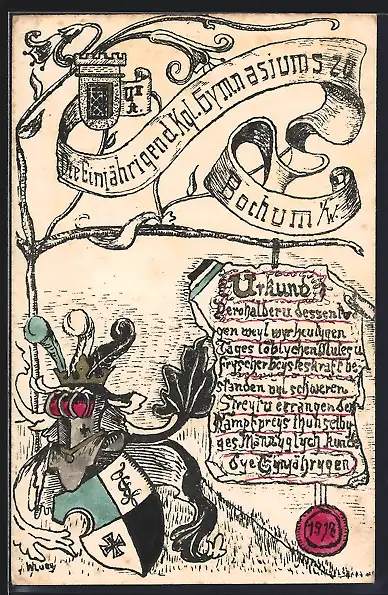 Die Einjährigen d. Kgl. Gymnasiums zu
Bochum i/W.
Urkund
Derohalben u dessentwe
gen weyl wyr heutygen
Tages löblychen Mutes u
frischer Geysteskraft be
standen den schweren
Streyt u errangen den
Kampfpreys thun selby
ges Männyglych kund
dye Eynjährygen